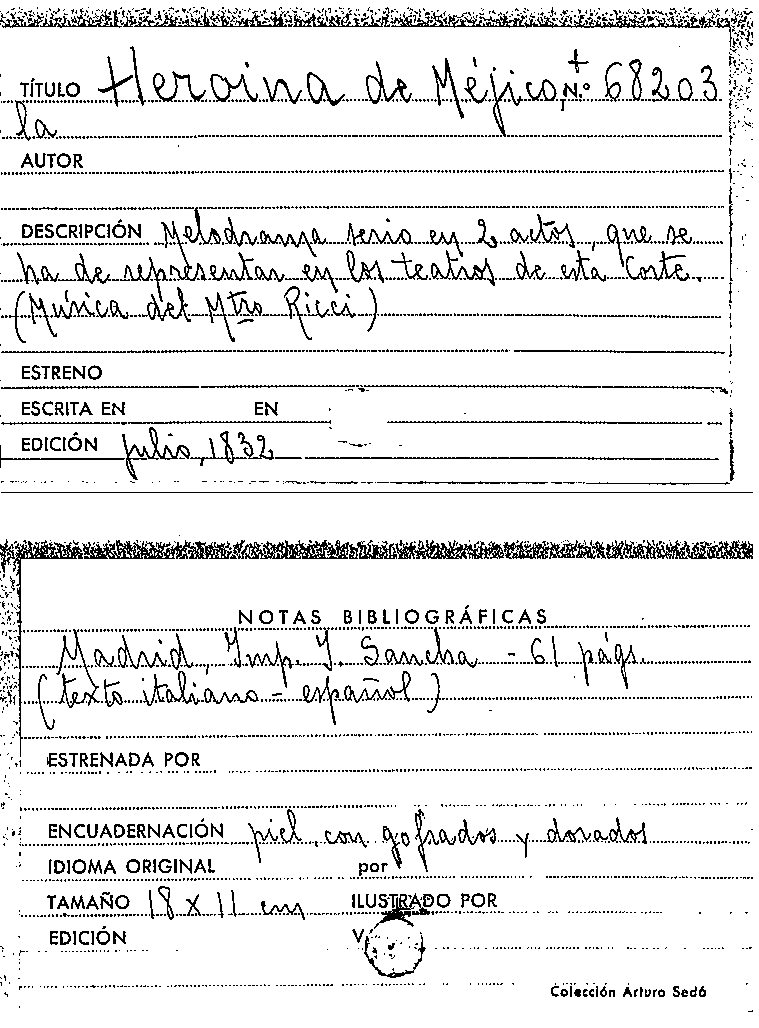 TÍTULO Heroina de Méjico, N.º 68203
la
AUTOR
DESCRIPCIÓN Melodrama serio en 2 actos, que se
ha de representar en los teatros de esta Corte.
(Música del Mtro Ricci)
ESTRENO
ESCRITA EN EN
EDICIÓN Julio, 1832
NOTAS BIBLIOGRÁFICAS
Madrid, Imp. I. Sancha - 61 págs.
(texto italiano - español)
ESTRENADA POR
ENCUADERNACIÓN piel, con gofrados y dorados
IDIOMA ORIGINAL por
TAMAÑO 18 x 11 cm ILUSTRADO POR
EDICIÓN V
Colección Arturo Sedó